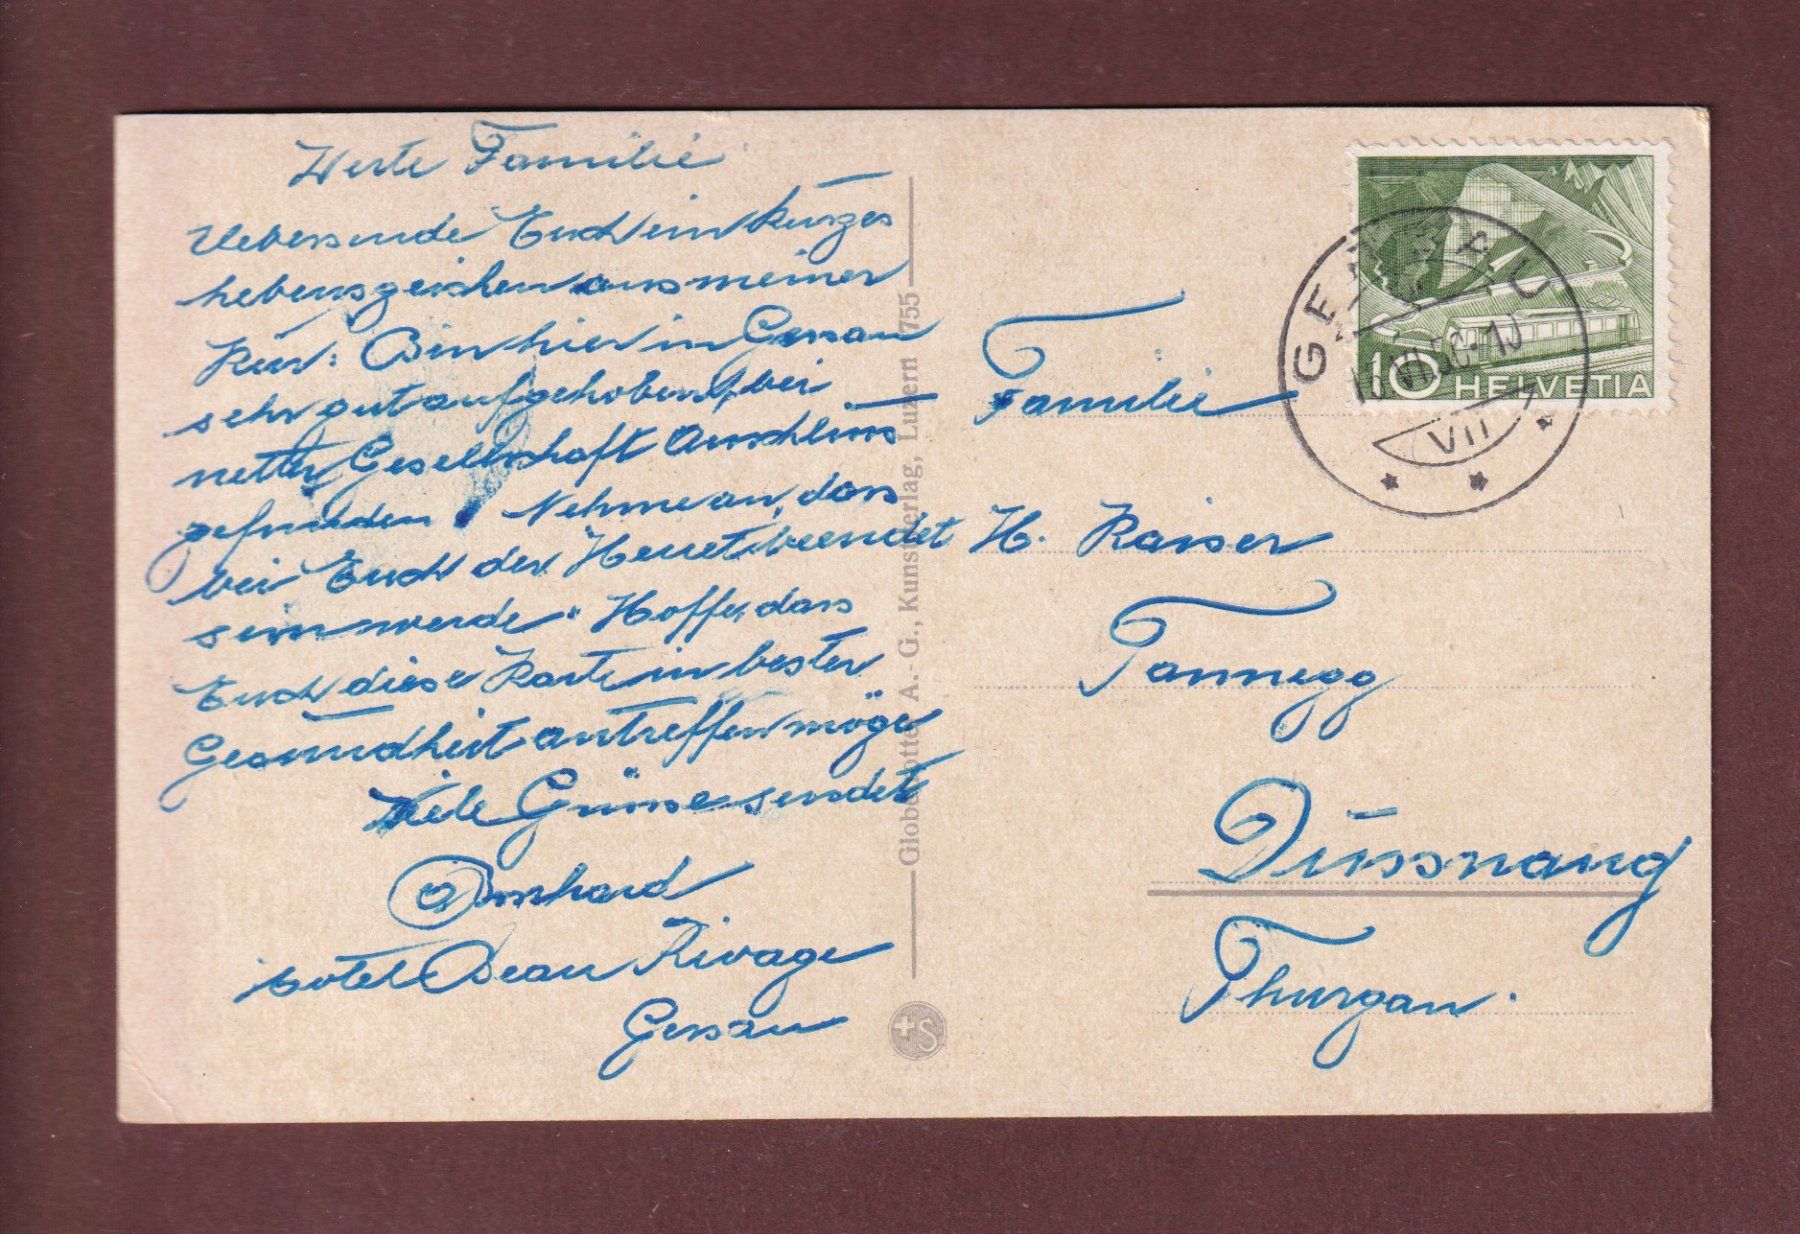 Werte Familie
Uebersende Euch ein kurzes
Lebenszeichen aus meiner
Kur: Bin hier in Gersau
sehr gut aufgehoben, bei
netter Gesellschaft Anschluss
gefunden. Nehme an, dass
bei Euch der Heuet beendet
sein werde. Hoffe, dass
Euch diese Karte in bester
Gesundheit antreffen möge
Viele Grüsse sendet
Hotel Beau Rivage
Gersau
Globetrotter A.-G., Kunstverlag, Luzern 755
HELVETIA
10
GERSAU
VII
Familie
H. Kaiser
Tannegg
Dussnang
Thurgau.